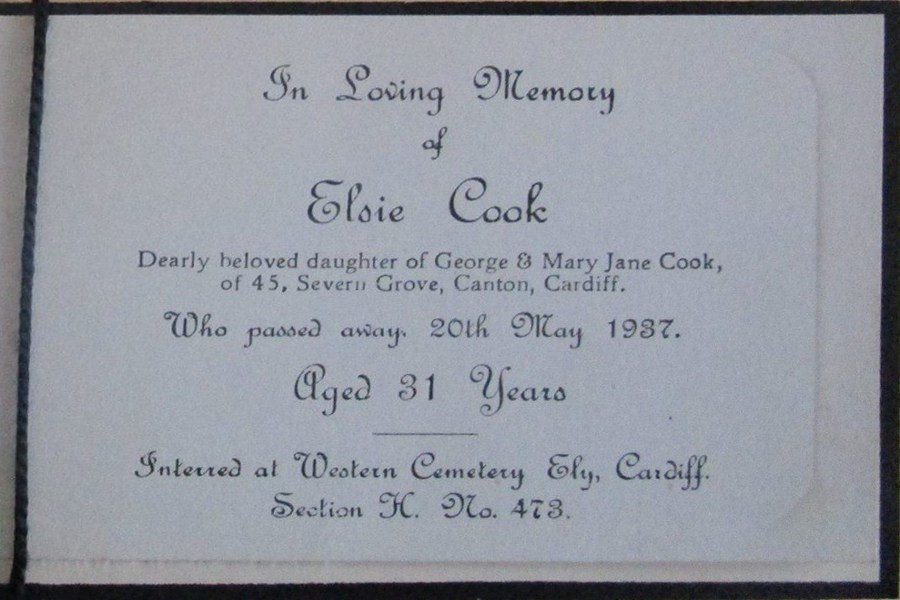 In Loving Memory
of
Elsie Cook
Dearly beloved daughter of George & Mary Jane Cook,
of 45, Severn Grove, Canton, Cardiff.
Who passed away. 20th May 1937.
Aged 31 Years
Interred at Western Cemetery Ely, Cardiff.
Section H. No. 473.